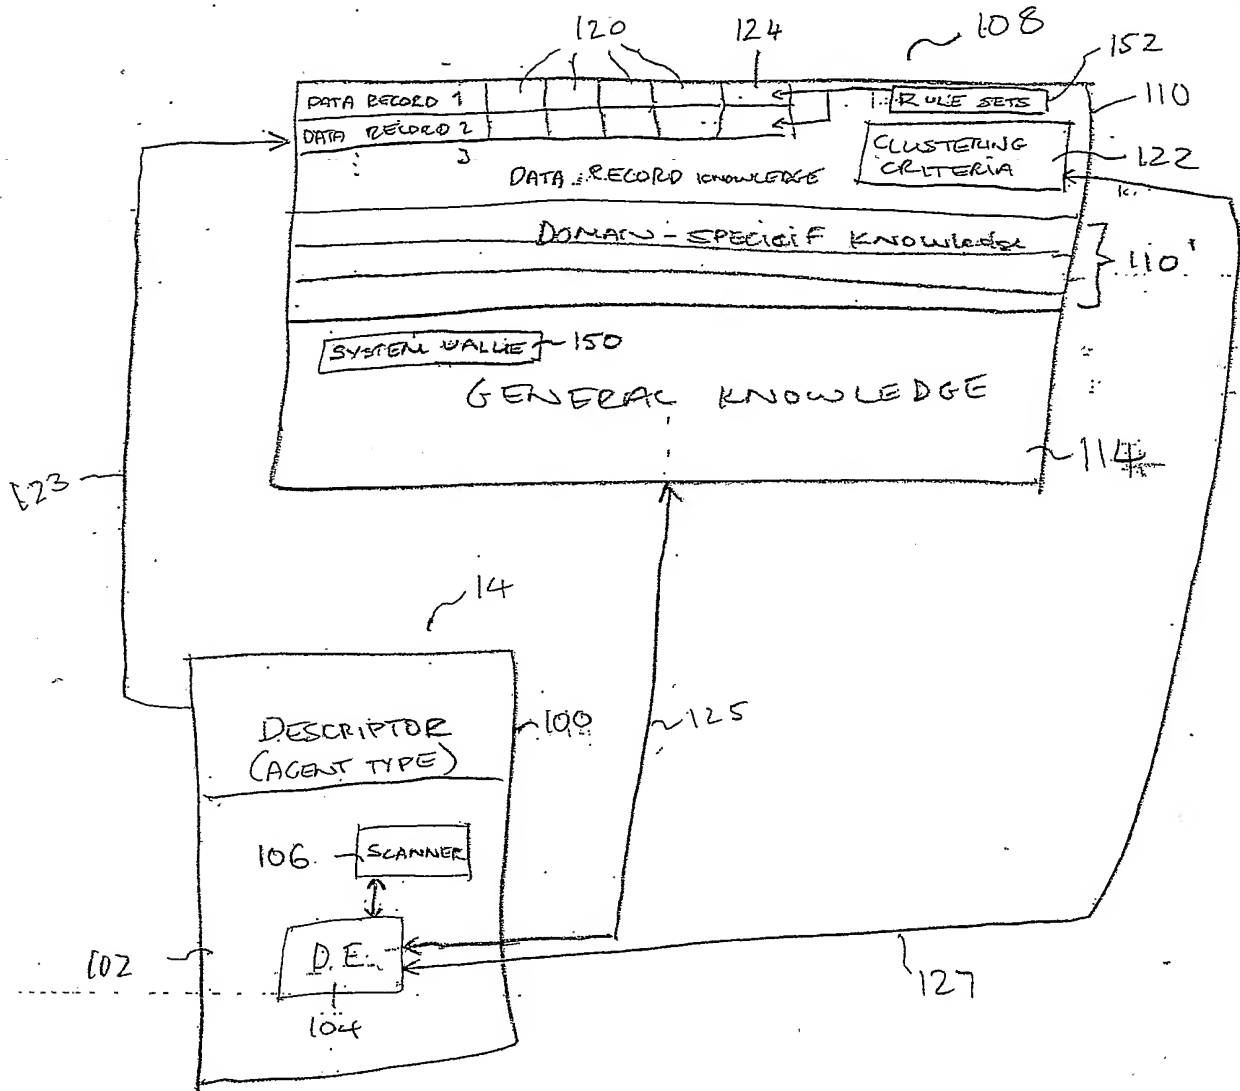 120
124
108
152
DATA RECORD 1
RULE SETS
110
DATA RECORD 2
CLUSTERING
CRITERIA
122
3
DATA RECORD KNOWLEDGE
DOMAIN-SPECIFIF KNOWLEDGE
110'
SYSTEM VALUE
150
GENERAL KNOWLEDGE
114
123
14
DESCRIPTOR
(AGENT TYPE)
100
125
106
SCANNER
102
D.E.
104
127